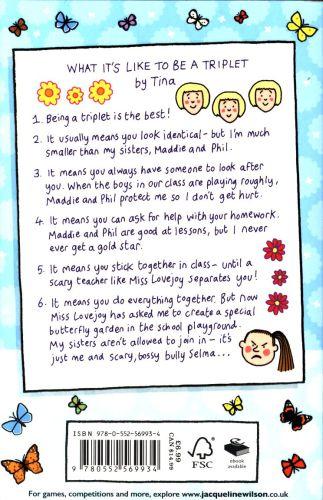 WHAT IT'S LIKE TO BE A TRIPLET
by Tina
1. Being a triplet is the best!
2. It usually means you look identical - but I'm much
smaller than my sisters, Maddie and Phil.
3. It means you always have someone to look after
you. When the boys in our class are playing roughly,
Maddie and Phil protect me so I don't get hurt.
4. It means you can ask for help with your homework.
Maddie and Phil are good at lessons, but I never
ever get a gold star.
5. It means you stick together in class - until a
scary teacher like Miss Lovejoy separates you!
6. It means you do everything together. But now
Miss Lovejoy has asked me to create a special
butterfly garden in the school playground.
My sisters aren't allowed to join in - it's
just me and scary, bossy bully Selma...
ISBN 978-0-552-56993-4
9 780552 569934
£6.99
CAN $14.99
FSC
ebook
available
For games, competitions and more, explore www.jacquelinewilson.co.uk